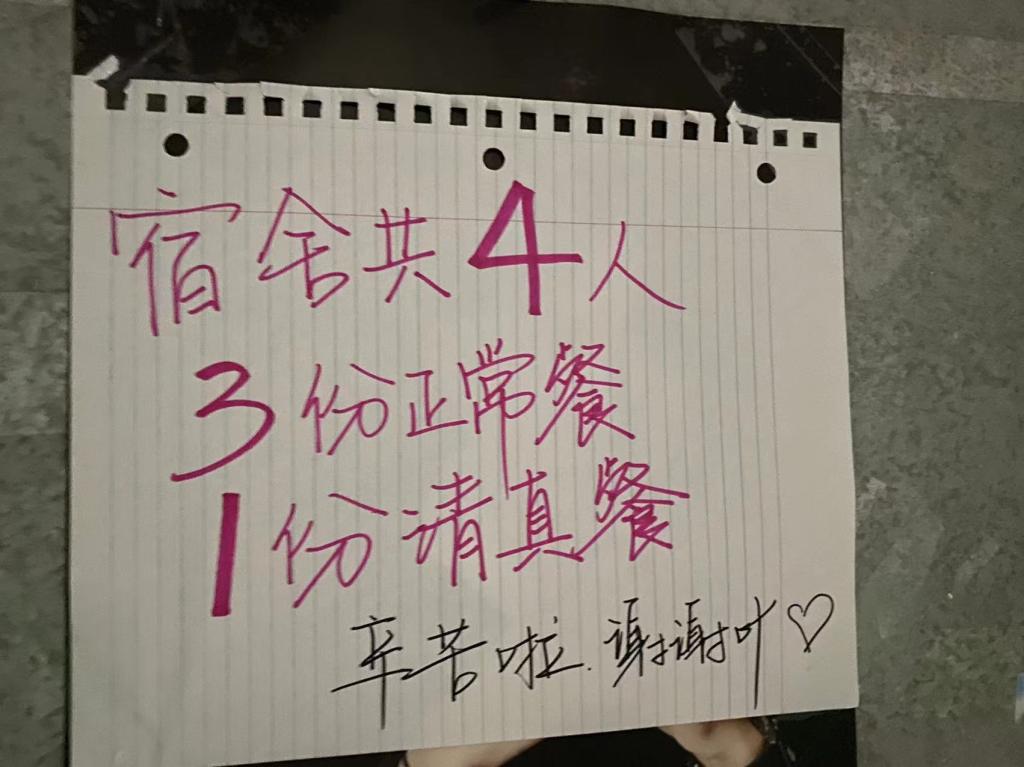 宿舍共4人
3份正常餐
1份请真餐
辛苦啦.谢谢叶♡